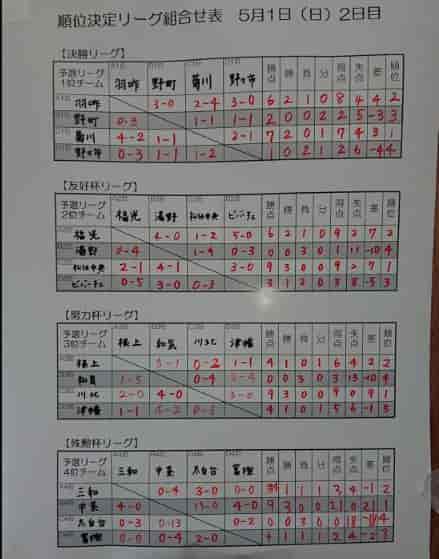 順位決定リーグ組合せ表 5月1日(日)2日目
【決勝リーグ】
予選リーグ 1位チーム 羽咋 野町 菊川 野々市 勝点 勝 負 分 得点 失点 差 順位
羽咋 3-0 2-4 3-0 6 2 1 0 8 4 4 2
野町 0-3 1-1 1-1 2 0 2 2 5 -3 3
菊川 4-2 1-1 2-1 7 2 0 1 7 4 3 1
野々市 0-3 1-1 1-2 1 0 2 1 2 6 -4 4
【友好杯リーグ】
予選リーグ 2位チーム 福光 湯野 松任中央 勝点 勝 負 分 得点 失点 差 順位
福光 4-0 1-2 5-0 6 2 1 0 9 2 7 2
湯野 0-4 1-4 0-3 0 0 3 0 1 -10 4
松任中央 2-1 4-1 3-0 9 3 0 0 9 2 7 1
0-5 3-0 0-3 3 1 2 0 3 8 -5 3
【努力杯リーグ】
予選リーグ 3位チーム 根上 和気 川北 津幡 勝点 勝 負 分 得点 失点 差 順位
根上 5-1 0-2 1-1 4 1 0 1 6 4 2 2
和気 1-5 0-4 0 0 3 0 3 13 -10 4
川北 2-0 4-0 3-0 9 3 0 0 9 0 9 1
津幡 1-1 0-3 4 1 0 1 5 6 -1 3
【殊勲杯リーグ】
予選リーグ 4位チーム 三和 中条 富樫 勝点 勝 負 分 得点 失点 差 順位
三和 0-4 3-0 0-0 1 1 1 3 4 -1 2
中条 4-0 13-0 4-0 9 3 0 0 21 0 21 1
0-3 0-13 0-2 0 0 3 0 0 18 -18 4
富樫 0-0 0-4 2-0 1 1 1 2 4 -2 3